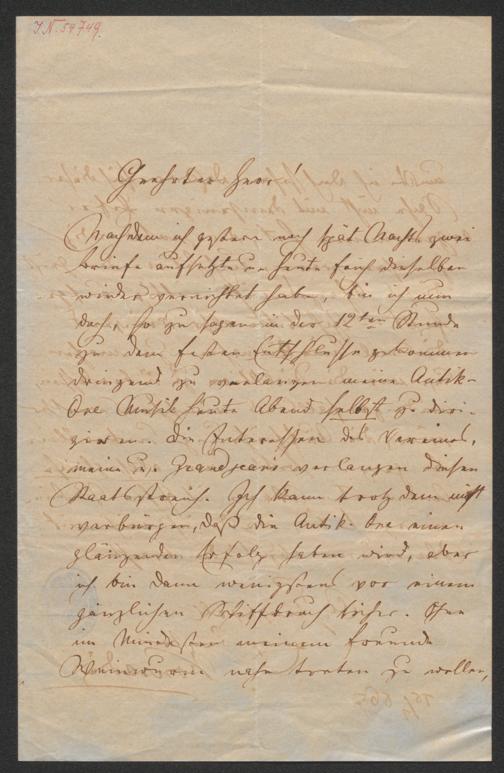 I.N. 54749.
Geehrter Herr!
Nachdem ich gestern noch spät Nachts zwei
Briefe aufsetzte u. heute früh dieselben
wieder vernichtet habe, bin ich nun
doch, so zu sagen in der 12ten Stunde
zu dem festen Entschlusse gekommen
dringend zu verlangen meine Antik-
One Musik heute Abend selbst zu diri-
giren. Die Interessen des Vereines,
meine u. verlangen diesen
Staatsstreich. Ich kann trotzdem nicht
verbürgen, daß die Antik. One einen
glänzenden Erfolg haben wird, aber
ich bin dann wenigstens vor einem
gänzlichen Schiffbruch sicher. Ohne
im Mindesten meinem Freunde
Weinwurm nahe treten zu wollen,